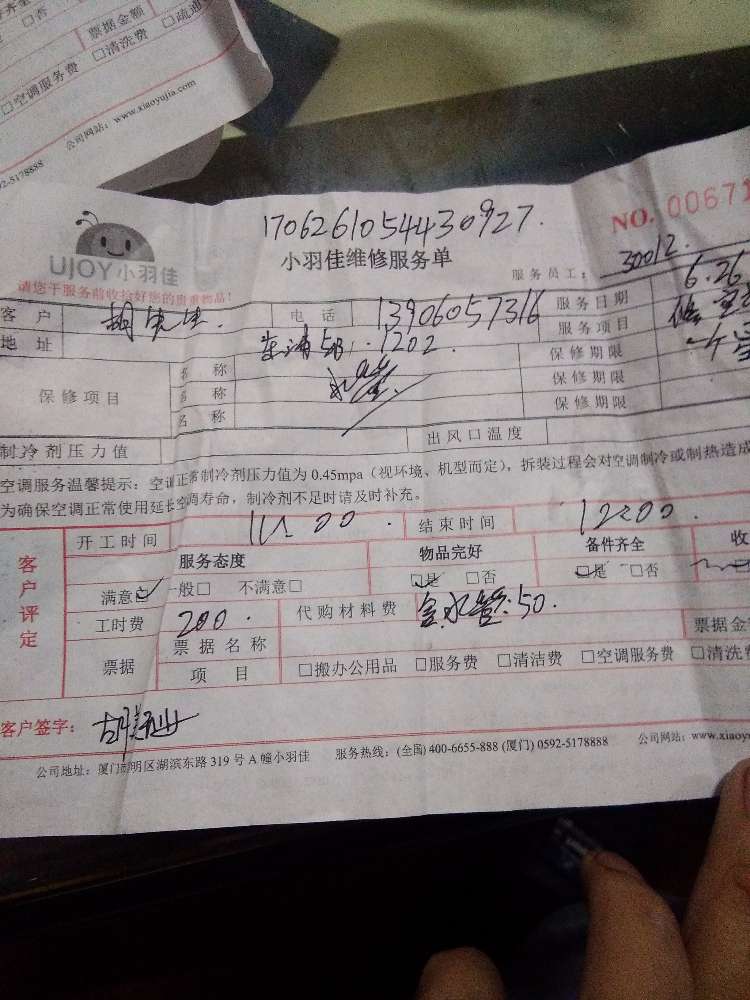 齐全
□否
票据金额
□空调服务费 □清洗费 □疏通
公司网站：www.xiaoyujia.com
92-5178888
1706261054430927.
NO. 00671
UJOY小羽佳
小羽佳维修服务单
请您于服务前收拾好您的贵重物品！
服务员工： 30012.
客 户 胡先生. 电 话 13906057316 服务日期 6.26
地 址 1202. 服务项目 修
保修项目
名 称 保修期限 一个
名 称 保修期限
名 称 保修期限
制冷剂压力值 出风口温度
空调服务温馨提示：空调正常制冷剂压力值为 0.45mpa（视环境、机型而定），拆装过程会对空调制冷或制热造成
为确保空调正常使用延长空调寿命，制冷剂不足时请及时补充。
客户评定
开工时间 结束时间 12:00.
服务态度 物品完好 备件齐全 收
满意☑ 一般□ 不满意□ ☑是 □否 ☑是 □否
工时费 200. 代购材料费 含水管:50.
票据 票据名称 票据金
项 目 □搬办公用品 □服务费 □清洁费 □空调服务费 □清洗费
客户签字：
公司地址：厦门思明区湖滨东路 319 号 A 幢小羽佳 服务热线：(全国) 400-6655-888 (厦门) 0592-5178888 公司网站：www.xiaoy